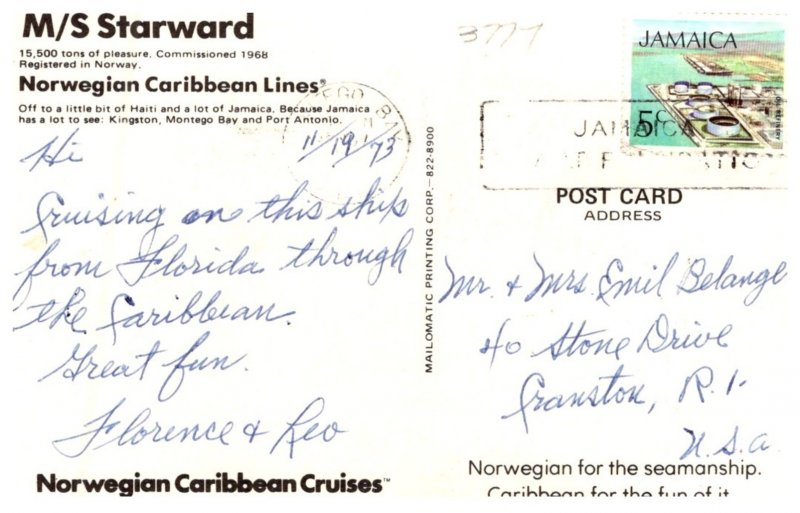 M/S Starward
15,500 tons of pleasure. Commissioned 1968
Registered in Norway.
Norwegian Caribbean Lines®
Off to a little bit of Haiti and a lot of Jamaica. Because Jamaica
has a lot to see: Kingston, Montego Bay and Port Antonio.
Hi 11/19/73
Cruising on this ship
from Florida through
the Caribbean.
Great fun.
Florence & Leo
Norwegian Caribbean Cruises™
MAILOMATIC PRINTING CORP.—822-8900
3777
JAMAICA
5¢
JAMAICA
POST CARD
ADDRESS
Mr. & Mrs. Emil Belange
40 Stone Drive
Cranston, R.I.
U.S.A.
Norwegian for the seamanship.
Caribbean for the fun of it.